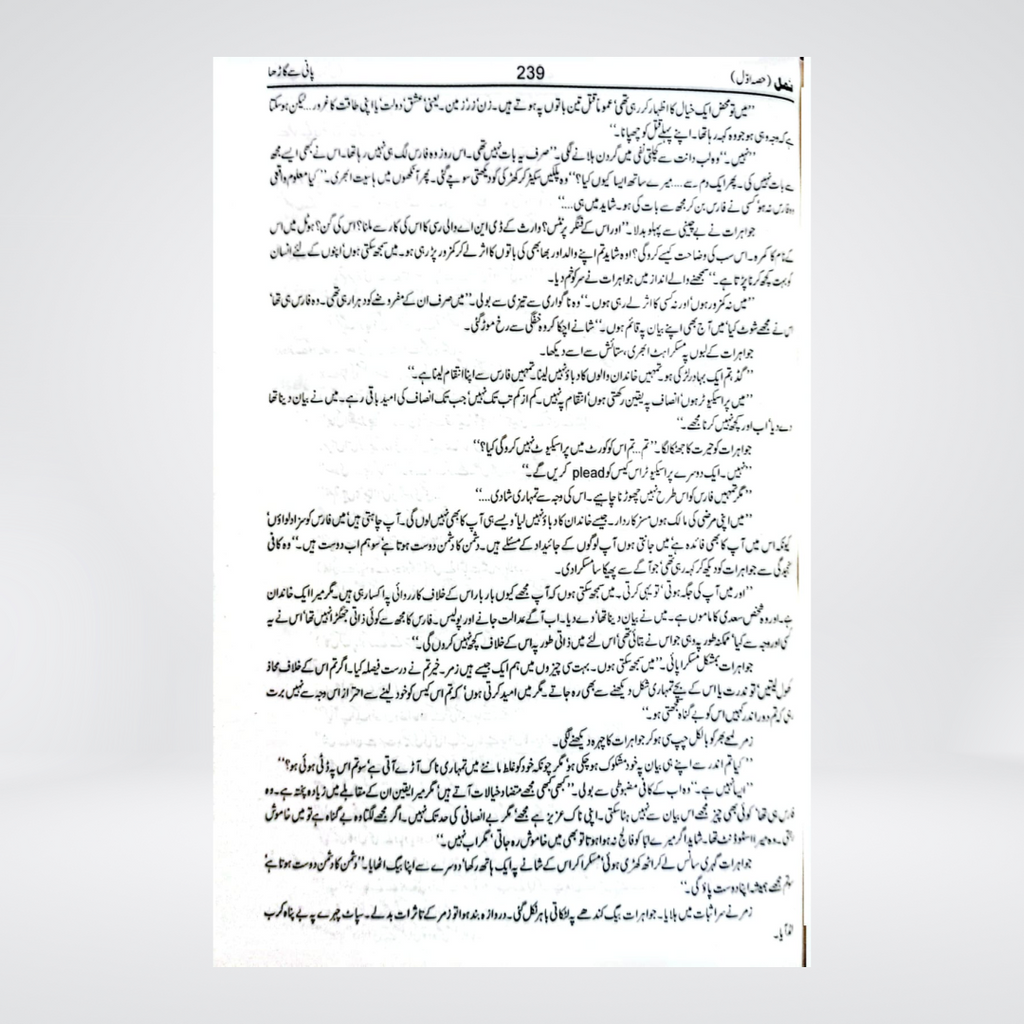 نمل (حصہ اوّل) 239 پانی سے گاڑھا
’’میں تو محض ایک خیال کا اظہار کر رہی تھی‘ عموماً قتل تین باتوں پہ ہوتے ہیں۔ زن‘ زر‘ زمین۔ یعنی‘ عشق‘ دولت‘ یا اپنی طاقت کا غرور.... لیکن ہو سکتا
ہے کہ وجہ وہی ہو جو وہ کہہ رہا تھا۔ اپنے پہلے قتل کو چھپانا۔‘‘
’’نہیں۔‘‘ وہ لب دانت سے کچلتی نفی میں گردن ہلانے لگی۔ ’’صرف یہ بات نہیں تھی۔ اس روز وہ فارس لگ ہی نہیں رہا تھا۔ اس نے کبھی ایسے مجھ
سے بات نہیں کی۔ پھر ایک دم سے.... میرے ساتھ ایسا کیوں کیا؟‘‘ وہ پلکیں سکیڑ کر کھڑکی کو دیکھتی سوچے گئی۔ پھر آنکھوں میں یاسیت ابھری۔ ’’کیا معلوم واقعی
وہ فارس نہ ہو‘ کسی نے فارس بن کر مجھ سے بات کی ہو۔ شاید میں ہی....‘‘
جواہرات نے بے چینی سے پہلو بدلا۔ ’’اور اس کے فنگر پرنٹس؟ وارث کے ڈی این اے والی رسی کا اس کی کار سے ملنا؟ اس کی گن؟ ہوٹل میں اس
کے نام کا کمرہ۔ اس سب کی وضاحت کیسے کرو گی؟ اوہ شاید تم اپنے والد اور بھابھی کی باتوں کا اثر لے کر کمزور پڑ رہی ہو۔ میں سمجھ سکتی ہوں‘ اپنوں کے لئے انسان
کو بہت کچھ کرنا پڑتا ہے۔‘‘ سمجھنے والے انداز میں جواہرات نے سر کو خم دیا۔
’’میں نہ کمزور ہوں‘ اور نہ کسی کا اثر لے رہی ہوں۔‘‘ وہ ناگواری سے تیزی سے بولی۔ ’’میں صرف ان کے مفروضے کو دہرا رہی تھی۔ وہ فارس ہی تھا‘
اس نے مجھے شوٹ کیا‘ میں آج بھی اپنے بیان پہ قائم ہوں۔‘‘ شانے اچکا کر وہ خفگی سے رخ موڑ گئی۔
جواہرات کے لبوں پہ مسکراہٹ ابھری‘ ستائش سے اسے دیکھا۔
’’گڈ‘ تم ایک بہادر لڑکی ہو۔ تمہیں خاندان والوں کا دباؤ نہیں لینا۔ تمہیں فارس سے اپنا انتقام لینا ہے۔‘‘
’’میں پراسیکیوٹر ہوں‘ انصاف پہ یقین رکھتی ہوں‘ انتقام پہ نہیں۔ کم از کم تب تک نہیں‘ جب تک انصاف کی امید باقی رہے۔ میں نے بیان دینا تھا
دے دیا‘ اب اور کچھ نہیں کرنا مجھے۔‘‘
جواہرات کو حیرت کا جھٹکا لگا۔ ’’تم... تم اس کو کورٹ میں پراسیکیوٹ نہیں کرو گی کیا؟‘‘
’’نہیں۔ ایک دوسرے پراسیکیوٹر اس کیس کو plead کریں گے۔‘‘
’’مگر تمہیں فارس کو اس طرح نہیں چھوڑنا چاہیے۔ اس کی وجہ سے تمہاری شادی....‘‘
’’میں اپنی مرضی کی مالک ہوں مسز کاردار۔ جیسے خاندان کا دباؤ نہیں لیا‘ ویسے ہی آپ کا بھی نہیں لوں گی۔ آپ چاہتی ہیں‘ میں فارس کو سزا دلواؤں‘
کیونکہ اس میں آپ کا بھی فائدہ ہے‘ میں جانتی ہوں آپ لوگوں کے جائیداد کے مسئلے ہیں۔ دشمن کا دشمن دوست ہوتا ہے‘ سو ہم اب دوست ہیں۔‘‘ وہ کافی
سنجیدگی سے جواہرات کو دیکھ کر کہہ رہی تھی‘ جو آگے سے پھیکا سا مسکرا دی۔
’’اور میں آپ کی جگہ ہوتی‘ تو یہی کرتی۔ میں سمجھ سکتی ہوں کہ آپ مجھے کیوں بار بار اس کے خلاف کارروائی پہ اکسا رہی ہیں۔ مگر میرا ایک خاندان
ہے۔ اور وہ شخص سعدی کا ماموں ہے۔ میں نے بیان دینا تھا‘ دے دیا۔ اب آگے عدالت جانے اور پولیس۔ فارس کا مجھ سے کوئی ذاتی جھگڑا نہیں تھا‘ اس نے یہ
کسی اور وجہ سے کیا‘ ممکنہ طور پہ وہی جو اس نے بتائی تھی‘ اس لئے میں ذاتی طور پہ اس کے خلاف کچھ نہیں کروں گی۔‘‘
جواہرات بمشکل مسکرا پائی۔ ’’میں سمجھ سکتی ہوں۔ بہت سی چیزوں میں ہم ایک جیسے ہیں زمر۔ خیر تم نے درست فیصلہ کیا۔ اگر تم اس کے خلاف محاذ
کھول لیتیں‘ تو ندرت یا اس کے بچے تمہاری شکل دیکھنے سے بھی رہ جاتے۔ مگر میں امید کرتی ہوں‘ کہ تم اس کیس کو خود لینے سے احتراز اس وجہ سے نہیں برت
رہی کہ تم دور اندر کہیں اس کو بے گناہ سمجھتی ہو۔‘‘
زمر لمحے بھر کو بالکل چپ سی ہو کر جواہرات کا چہرہ دیکھنے لگی۔
’’کیا تم اندر سے اپنے ہی بیان پہ خود مشکوک ہو چکی ہو‘ مگر چونکہ خود کو غلط ماننے میں تمہاری ناک آڑے آتی ہے‘ سو تم اس پہ ڈٹی ہوئی ہو؟‘‘
’’ایسا نہیں ہے۔‘‘ وہ اب کے کافی مضبوطی سے بولی۔ ’’کبھی کبھی مجھے متضاد خیالات آتے ہیں‘ مگر میرا یقین ان کے مقابلے میں زیادہ پختہ ہے۔ وہ
فارس ہی تھا‘ کوئی بھی چیز مجھے اس بیان سے نہیں ہٹا سکتی۔ اپنی ناک عزیز ہے مجھے‘ مگر بے انصافی کی حد تک نہیں۔ اگر مجھے لگتا وہ بے گناہ ہے تو میں خاموش
رہتی۔ وہ میرا اسٹوڈنٹ تھا۔ شاید اگر میرے ابا کو فالج نہ ہوا ہوتا تو بھی میں خاموش رہ جاتی‘ مگر اب نہیں۔‘‘
جواہرات گہری سانس لے کر اٹھ کھڑی ہوئی‘ مسکرا کر اس کے شانے پہ ایک ہاتھ رکھا‘ دوسرے سے اپنا بیگ اٹھایا۔ ’’دشمن کا دشمن دوست ہوتا ہے‘
سو تم مجھے ہمیشہ اپنا دوست پاؤ گی۔‘‘
زمر نے سر اثبات میں ہلایا۔ جواہرات بیگ کندھے پہ لٹکاتی باہر نکل گئی۔ دروازہ بند ہوا تو زمر کے تاثرات بدلے۔ سپاٹ چہرے پہ بے پناہ کرب
امڈ آیا۔